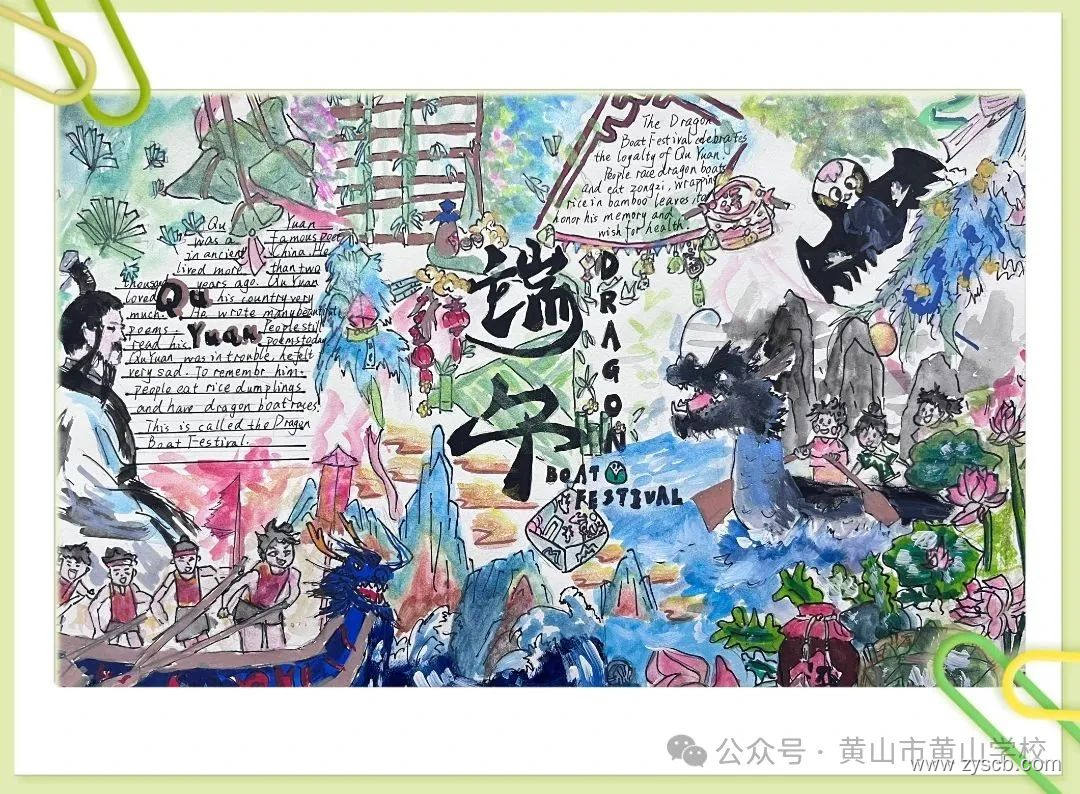 Qu Yuan
was a famous poet
in ancient China. He
lived more than two
thousand years ago. Qu Yuan
loved his country very
much. He wrote many beautiful
poems. People still
read his poems today
Qu Yuan was in trouble, he felt
very sad. To remembr him,
people eat rice dumplings
and have dragon boat races.
This is called the Dragon
Boat Festival.
Qu
Yuan
The Dragon
Boat Festival celebrates
the loyalty of Qu Yuan.
People race dragon boats
and eat zongzi, wrapping
rice in bamboo leaves, to
honor his memory and
wish for health.
端午
DRAGON
BOAT
FESTIVAL
公众号 · 黄山市黄山学校
www.zyscb.com